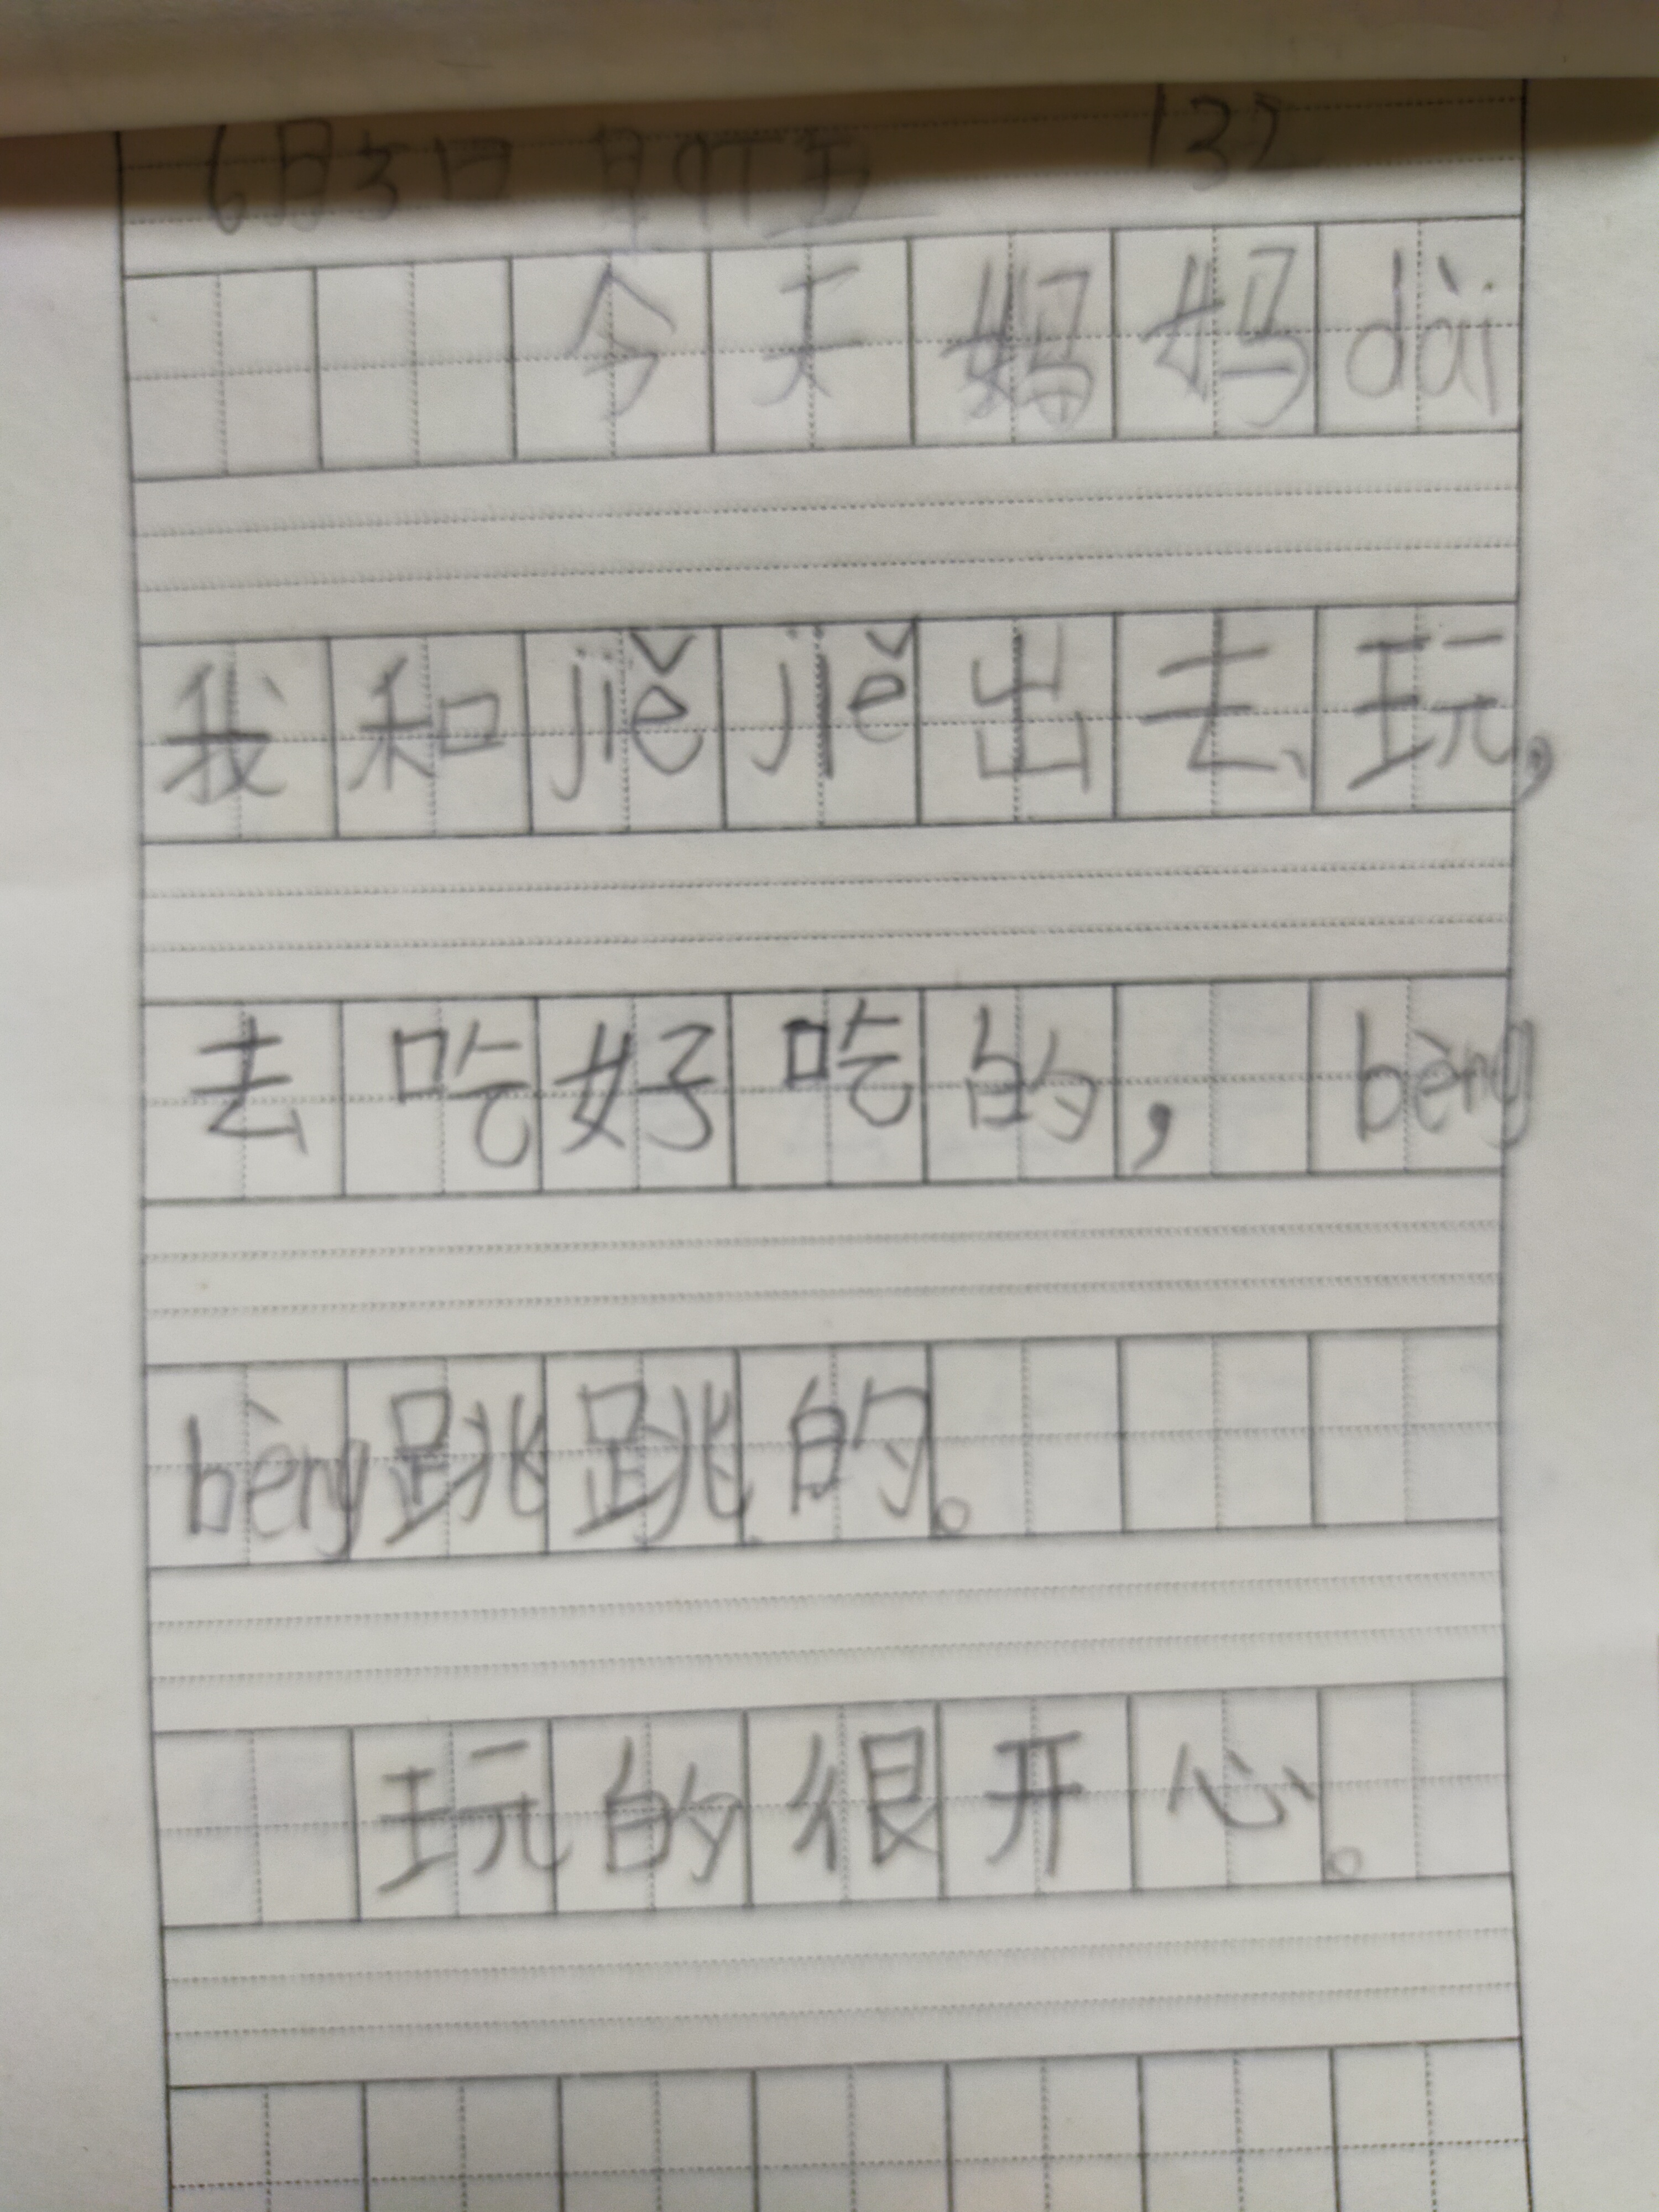 6月3日 星期五 132
今天妈妈dài
我和jiějiě出去玩，
去吃好吃的，bèng
bèng跳跳的。
玩的很开心。